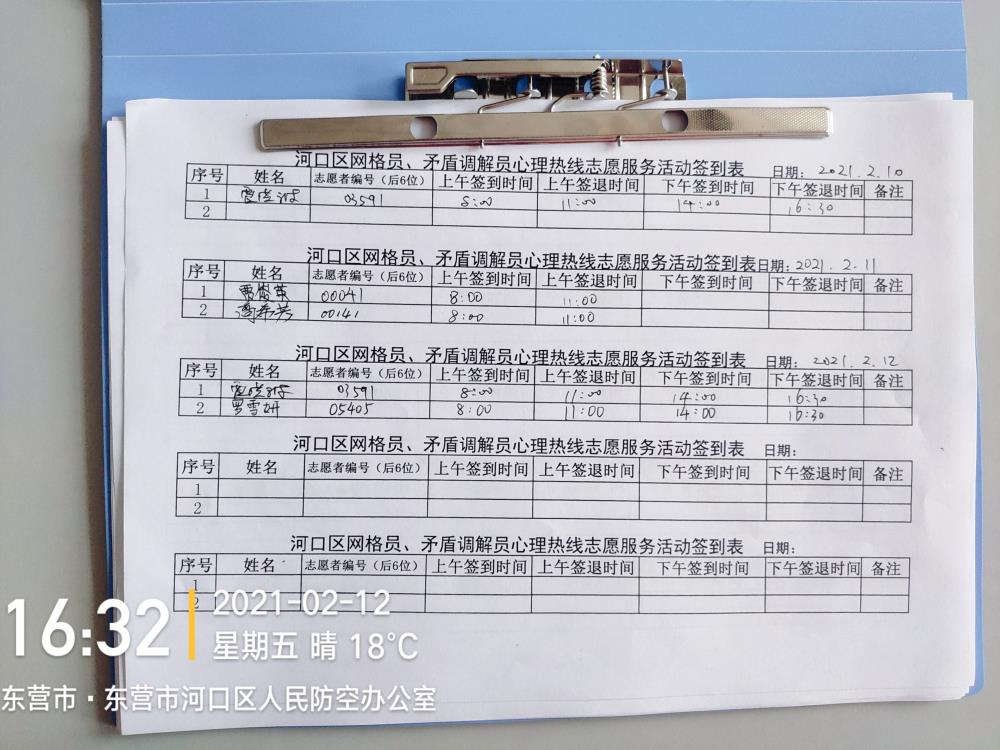 河口区网格员、矛盾调解员心理热线志愿服务活动签到表 日期：2021.2.10
序号 姓名 志愿者编号（后6位） 上午签到时间 上午签退时间 下午签到时间 下午签退时间 备注
1 03591 8:00 11:00 14:00 16:30
2
河口区网格员、矛盾调解员心理热线志愿服务活动签到表 日期：2021.2.11
序号 姓名 志愿者编号（后6位） 上午签到时间 上午签退时间 下午签到时间 下午签退时间 备注
1 00041 8:00 11:00
2 00141 8:00 11:00
河口区网格员、矛盾调解员心理热线志愿服务活动签到表 日期：2021.2.12
序号 姓名 志愿者编号（后6位） 上午签到时间 上午签退时间 下午签到时间 下午签退时间 备注
1 03591 8:00 11:00 14:00 16:30
2 罗雪妍 05405 8:00 11:00 14:00 16:30
河口区网格员、矛盾调解员心理热线志愿服务活动签到表 日期：
序号 姓名 志愿者编号（后6位） 上午签到时间 上午签退时间 下午签到时间 下午签退时间 备注
1
2
河口区网格员、矛盾调解员心理热线志愿服务活动签到表 日期：
序号 姓名 志愿者编号（后6位） 上午签到时间 上午签退时间 下午签到时间 下午签退时间 备注
1
2
16:32
2021-02-12
星期五 晴 18℃
东营市·东营市河口区人民防空办公室